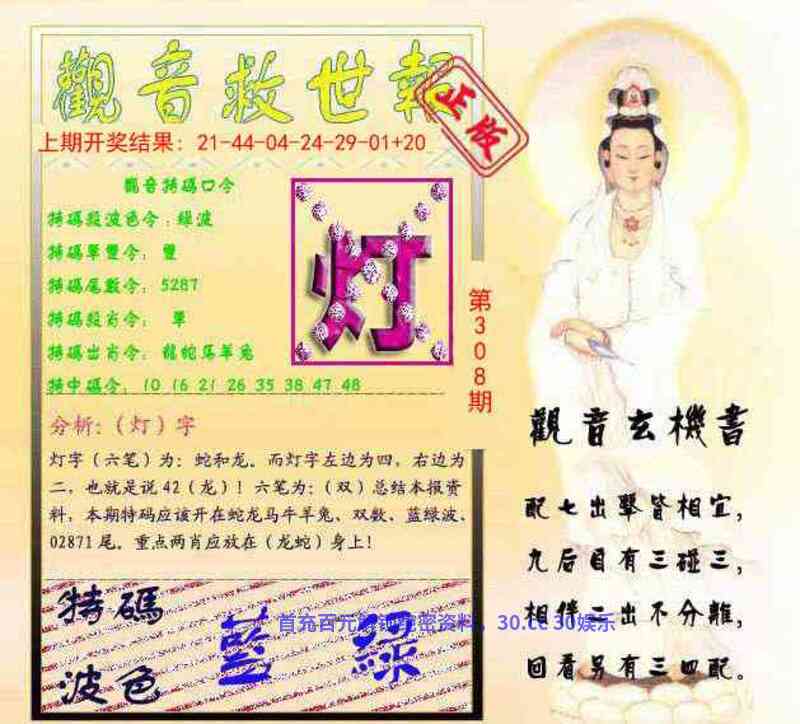 觀音救世報
正版
上期开奖结果：21-44-04-24-29-01+20
觀音特碼口令
特碼段波色令：綠波
特碼單雙令：雙
特碼尾數令：5287
特碼段肖令：單
特碼出肖令：龍蛇馬羊兔
特中碼令：10 16 21 26 35 38 47 48
灯
第308期
分析：（灯）字
灯字（六笔）为：蛇和龙。而灯字左边为四，右边为
二，也就是说42（龙）！六笔为：（双）总结本报资
料，本期特码应该开在蛇龙马牛羊兔、双数、蓝绿波、
02871尾。重点两肖应放在（龙蛇）身上！
觀音玄機書
配七出擊皆相宜，
九后目有三碰三，
相伴二出不分離，
回看另有三四配。
特碼
波色
藍 綠
首充百元 资料，30.cc 30娱乐